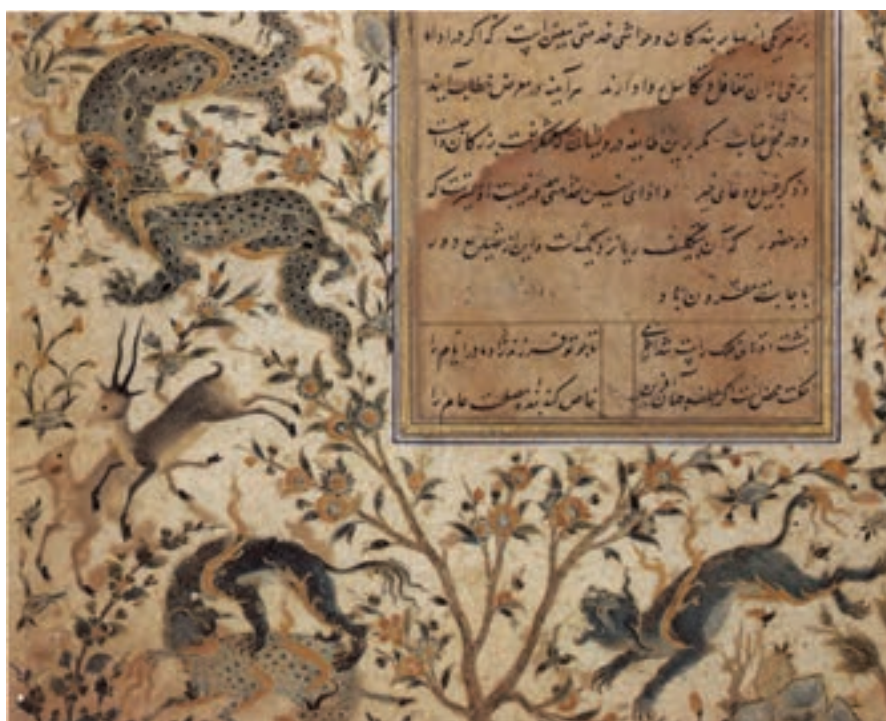 بر هر یکی از سایر بندگان و حواشی خدمتی معین است که اگر در ادای
برخی از آن تغافل و تکاسل روا دارند هرآینه در معرض خطاب آیند
و در محل عتاب مگر برین طایفه درویشان که شکر نعمت بزرگان واجب
و ذکر جمیل و دعای خیر و ادای چنین خدمتی در غیبت اولیترست که
در حضور که آن بتکلف و این از تصنع دور
باجابت مقرون باد
پشت دوتای فلک راست شد از خرمی تا چو تو فرزند زاد مادر ایام را
حکمت محض است اگر لطف جهان آفرین خاص کند بنده مصلحت عام را